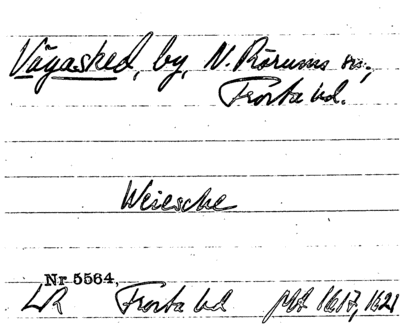 Vägasked, by, N. Rörums sn,
Frosta hd.
Weiesche
Nr 5564,
LR Frosta hd Jb 1617, 1621